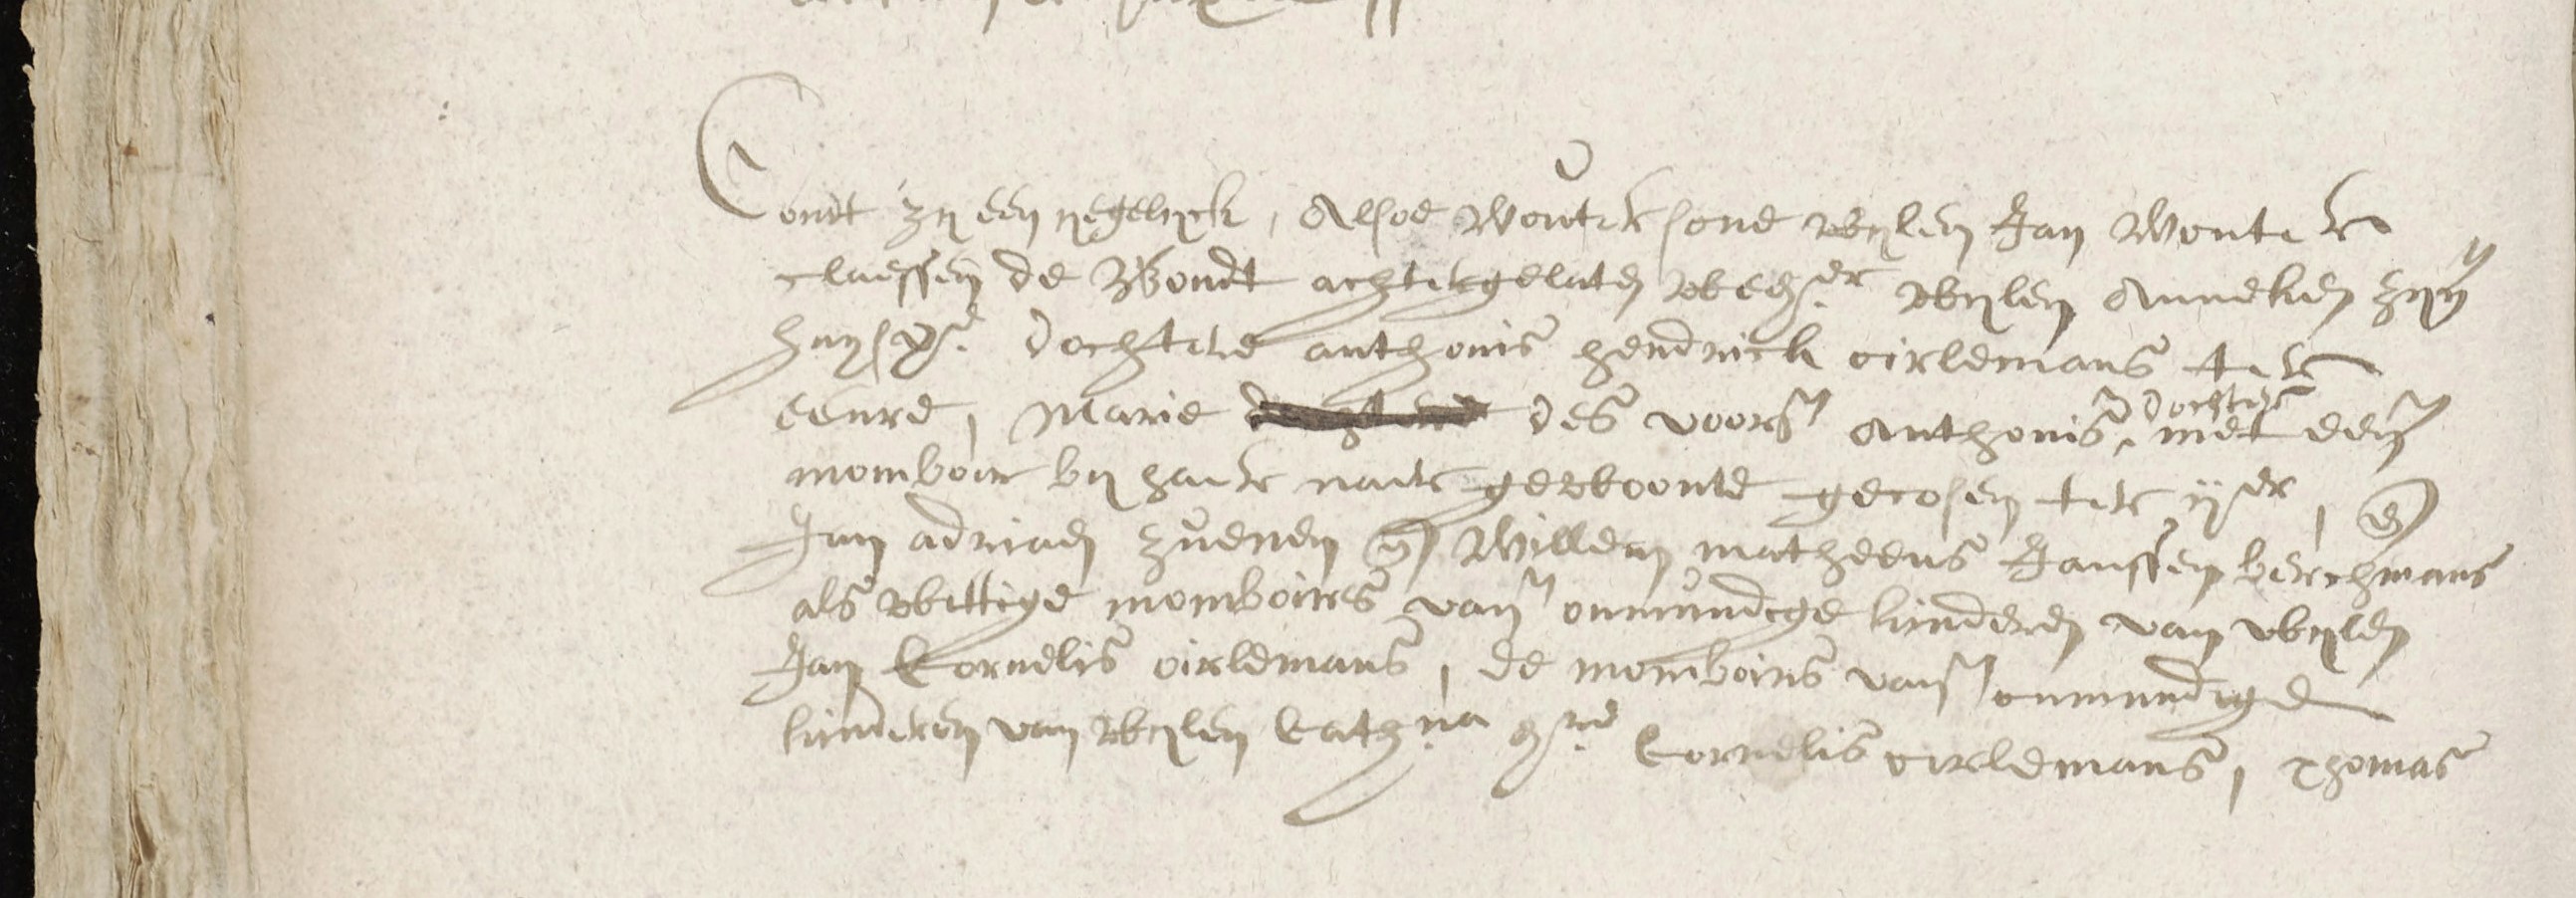 Condt zij een yegelyck, Alsoe Wouter sone wylen Jan Wouter
claessen de Wondt achtergelaten weduer wylen Anneken zyn
huysvr. dochtere anthonis hendrick oirlemans ter
eenre, Marie des voors Anthonis dochter met een
momboir by haer naer gewoonte gecosen ter ijer, en
Jan adriaen zuenen en Willem matheeus Janssen berchmans
als wettige momboirs van onmundige kinderen van wylen
Jan Cornelis oirlemans, de momboirs vans onmundige
kinderen van wylen Cath.na Cornelis oirlemans, Thomas